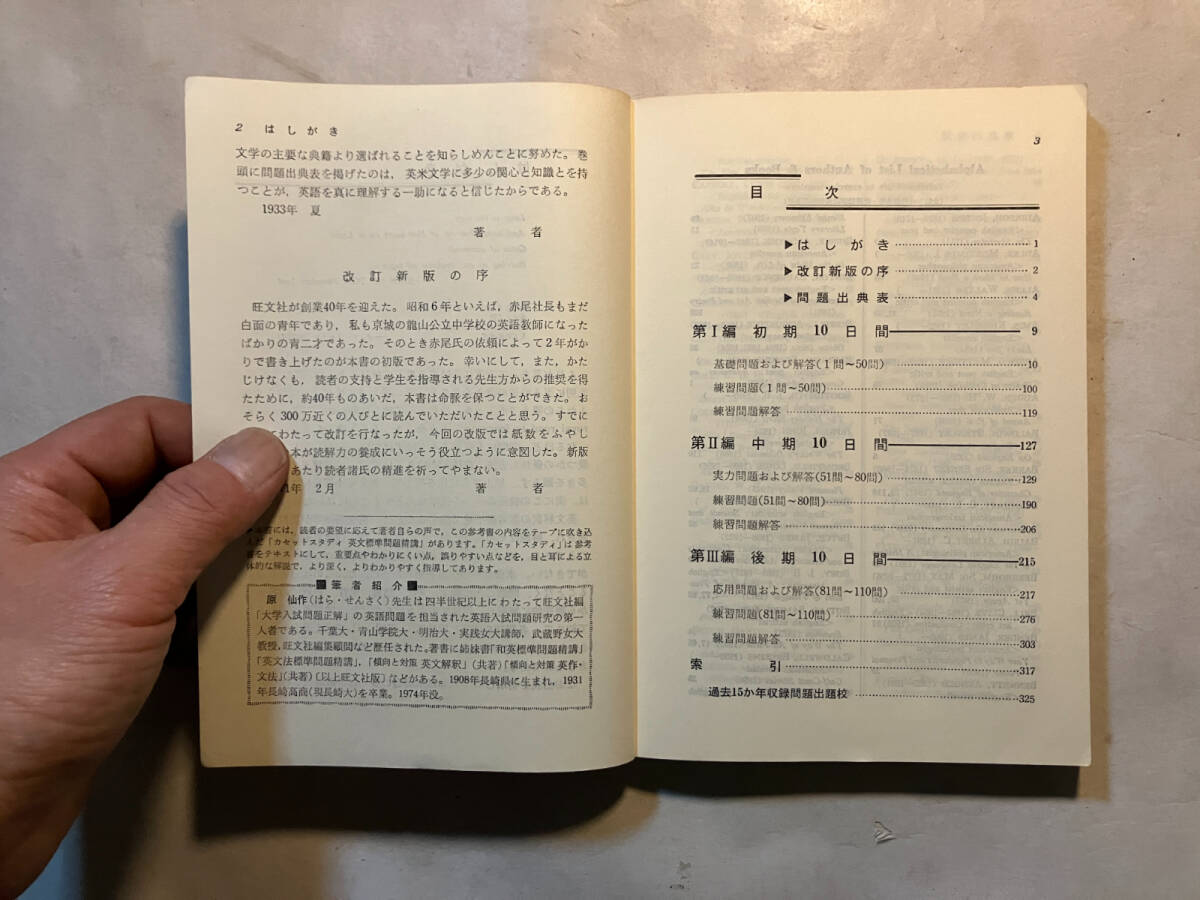 2 はしがき
文学の主要な典籍より選ばれることを知らしめんことに努めた。巻
頭に問題出典表を掲げたのは，英米文学に多少の関心と知識とを持
つことが，英語を真に理解する一助になると信じたからである。
1933年 夏
著 者
改訂新版の序
旺文社が創業40年を迎えた。昭和6年といえば，赤尾社長もまだ
白面の青年であり，私も京城の龍山公立中学校の英語教師になった
ばかりの青二才であった。そのとき赤尾氏の依頼によって2年がか
りで書き上げたのが本書の初版であった。幸いにして，また，かた
じけなくも，読者の支持と学生を指導される先生方からの推奨を得
たために，約40年ものあいだ，本書は命脈を保つことができた。お
そらく300万近くの人びとに読んでいただいたことと思う。すでに
わたって改訂を行なったが，今回の改版では紙数をふやし
本が読解力の養成にいっそう役立つように意図した。新版
あたり読者諸氏の精進を祈ってやまない。
1年 2月 著 者
には，読者の要望に応えて著者自らの声で，この参考書の内容をテープに吹き込
んだ「カセットスタディ 英文標準問題精講」があります。「カセットスタディ」は参考
書をテキストにして，重要点やわかりにくい点，誤りやすい点などを，目と耳による立
体的な解説で，より深く，よりわかりやすく指導してあります。
筆者紹介
原 仙作(はら・せんさく)先生は四半世紀以上にわたって旺文社編
「大学入試問題正解」の英語問題を担当された英語入試問題研究の第一
人者である。千葉大・青山学院大・明治大・実践女大講師，武蔵野女大
教授，旺文社編集顧問など歴任された。著書に姉妹書「和英標準問題精講」
「英文法標準問題精講」，「傾向と対策 英文解釈」(共著)「傾向と対策 英作・
文法」(共著)〔以上旺文社版〕などがある。1908年長崎県に生まれ，1931
年長崎高商(現長崎大)を卒業。1974年没。
3
目 次
▶はしがき 1
▶改訂新版の序 2
▶問題出典表 4
第Ⅰ編 初期10日間 9
基礎問題および解答(1問〜50問) 10
練習問題(1問〜50問) 100
練習問題解答 119
第Ⅱ編 中期10日間 127
実力問題および解答(51問〜80問) 129
練習問題(51問〜80問) 190
練習問題解答 206
第Ⅲ編 後期10日間 215
応用問題および解答(81問〜110問) 217
練習問題(81問〜110問) 276
練習問題解答 303
索 引 317
過去15か年収録問題出題校 325